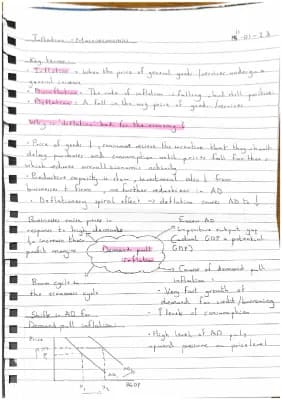 Inflation - Macroeconomics
-01-23
Key terms
• Inflation : When the price of general goods/services undergo a
general increase
• Disinflation : The rate of inflation is falling, but still positive
• Deflation : A fall in the avg price of goods/services
Why is 'deflation' bad for the economy?
• Price of goods ↓, consumers receive the incentive that they should
delay purchases and consumption until prices fall further
which reduces overall economic activity
• Productive capacity is down, investment also ↓ from
businesses + firms, further reductions in AD
• Deflationary spiral effect → deflation causes AD to ↓
Businesses raise price in
response to high demand
to increase their
profit margins
Demand pull
inflation
Excess AD
→ Positive output gap
(actual GDP > potential
GDP)
Boom cycle in
the economic cycle
→ Causes of demand pull
inflation :
- Very fast growth of
demand for credit/borrowing
- ↑ levels of consumption
Shifts in AD for
Demand pull inflation
Price
• High level of AD puts
upward pressure on price level
AD
AD
Y
Y
RGDP